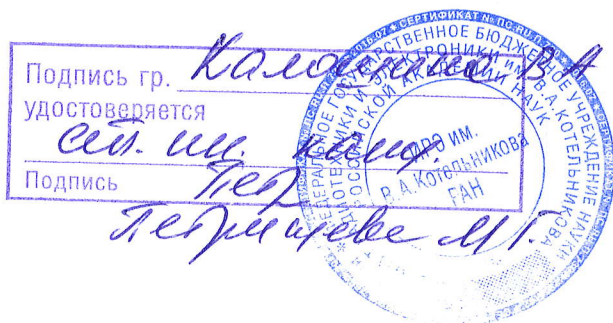 Подпись гр. Калошина В А
удостоверяется
ст. ин. канц.
Подпись
Петрищева М Г.
СЕРТИФИКАТ №
ГОСУДАРСТВЕННОЕ БЮДЖЕТНОЕ УЧРЕЖДЕНИЕ НАУКИ
РАДИОТЕХНИКИ И ЭЛЕКТРОНИКИ им. В.А. КОТЕЛЬНИКОВА
РОССИЙСКОЙ АКАДЕМИИ НАУК
ИРЭ ИМ.
В.А. КОТЕЛЬНИКОВА
РАН